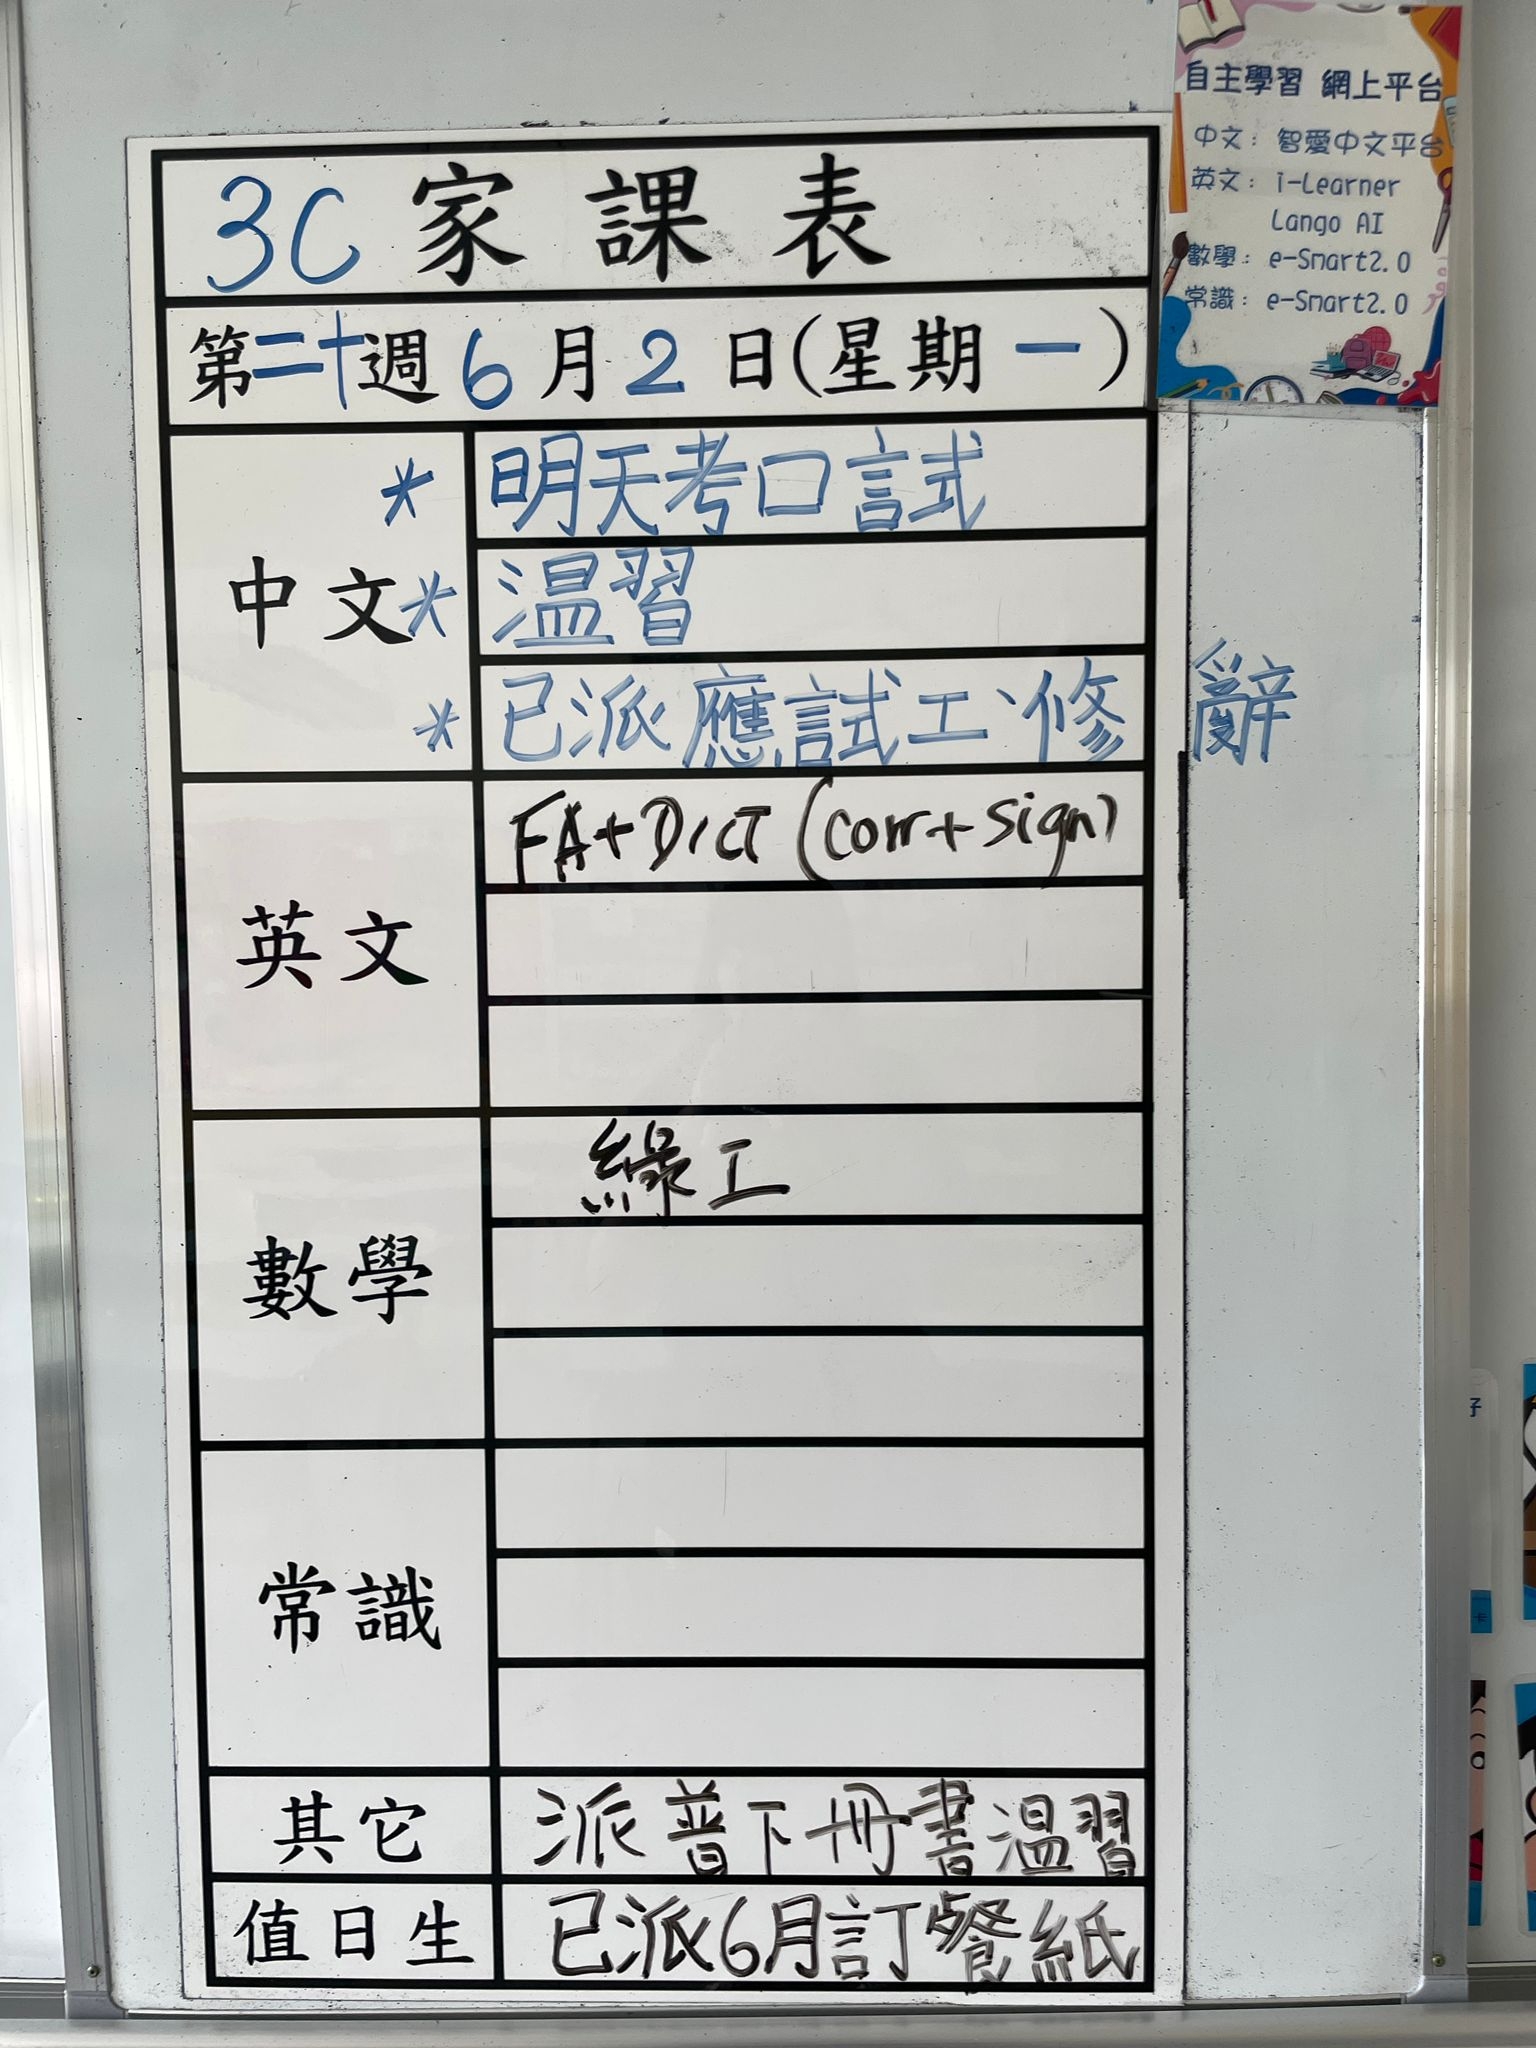 自主學習 網上平台
中文：智愛中文平台
英文：i-Learner
Lango AI
數學：e-Smart2.0
常識：e-Smart2.0
3C 家課表
第二十週6月2日(星期一)
中文
* 明天考口試
* 温習
* 已派應試工、修辭
英文
FA+Dict (corr+sign)
數學
綠工
常識
其它
派普下冊書温習
值日生
已派6月訂餐紙
好
卡